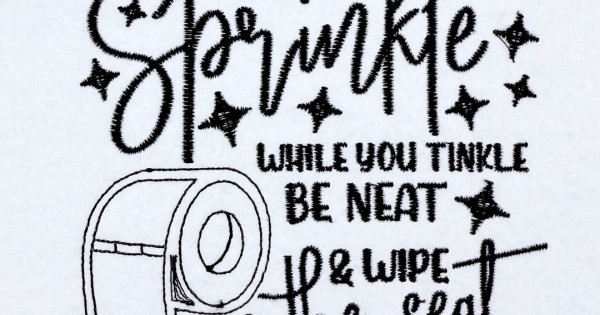 Sprinkle
WHILE YOU TINKLE
BE NEAT
& WIPE
the seat